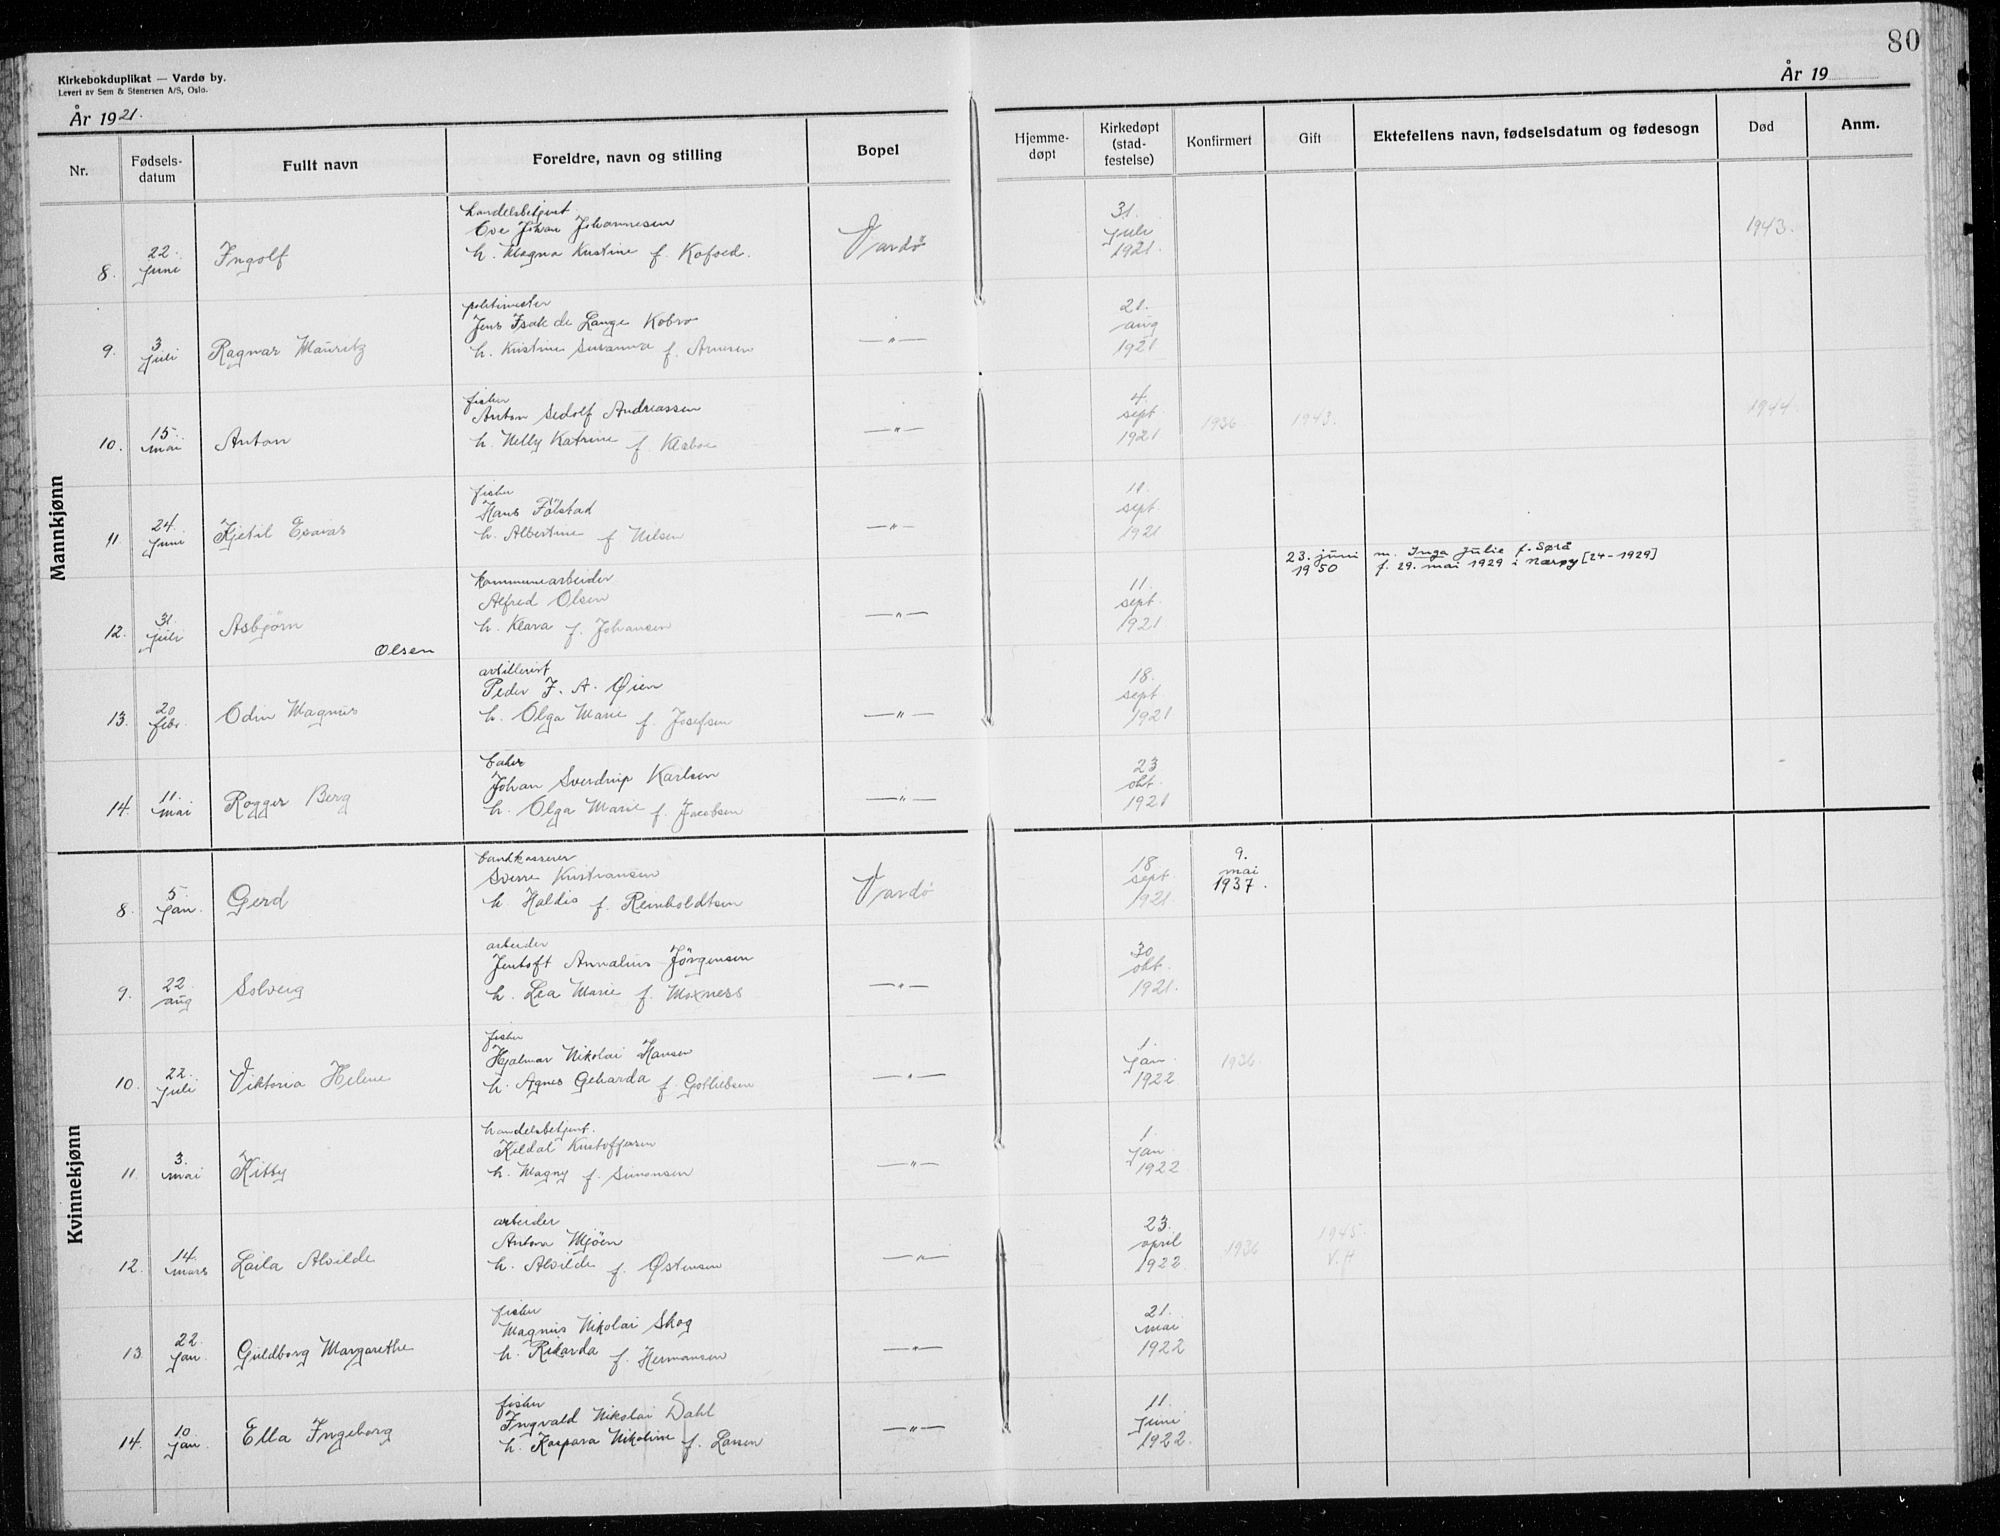 80
Kirkebokduplikat — Vardø by.
Levert av Sem & Stenersen A/S, Oslo.
År 1921.
År 19
Nr.
Fødsels-
datum
Fullt navn
Foreldre, navn og stilling
Bopel
Hjemme-
døpt
Kirkedøpt
(stad-
festelse)
Konfirmert
Gift
Ektefellens navn, fødselsdatum og fødesogn
Død
Anm.
Mannkjønn
8. 22. juni Ingolf
handelsbetjent
Ove Johan Johannesen
h. Magna Kristine f. Kofoed.
Vardø
31. juli 1921.
1943.
9. 3 juli Ragnar Mauritz
politimester
Jens Isak de Lange Kobro
h. Kristine Susanna f. Arnesen
—"—
21. aug 1921
10. 15. mai Anton
fisker
Anton Sedolf Andreassen
h. Nelly Katrine f. Klæboe
—"—
4. sept 1921
1936
1943.
1944.
11. 24. juni Kjetil Esaias
fisker
Hans Fölstad
h. Albertine f Nilsen
—"—
11. sept. 1921
12. 31. juli Asbjørn
Olsen
kommunearbeider
Alfred Olsen
h. Klara f. Johansen
—"—
11. sept. 1921
23. juni 1950
m. Inga Julie f. Sørå
f. 29. mai 1929 i Nærøy [24-1929]
13. 20 febr. Odin Magnus
artillerist
Peder J. A. Øien
h. Olga Marie f. Josefsen
—"—
18. sept. 1921
14. 11. mai Rogger Berg
baker
Johan Sverdrup Karlsen
h. Olga Marie f. Jacobsen
—"—
23 okt. 1921
Kvinnekjønn
8. 5. jan. Gerd
bankkasserer
Sverre Kristiansen
h. Haldis f. Reinholdtsen
Vardø
18 sept. 1921
9. mai 1937.
9. 22. aug Solveig
arbeider
Jentoft Annalius Jörgensen
h. Lea Marie f. Moxness
—"—
30 okt. 1921.
10. 22. juli Viktoria Helene
fisker
Hjalmar Nikolai Hansen
h. Agnes Geharda f. Gotliebsen
—"—
1. jan. 1922
1936
11. 3. mai Kitty
handelsbetjent.
Kildal Kristoffersen
h. Magny f. Simonsen
—"—
1. jan. 1922
12. 14. mars Laila Alvilde
arbeider
Anton Mjöen
h. Alvilde f. Østensen
—"—
23. april 1922
1936
1945.
V.H
13. 22. jan. Guldborg Margarethe
fisker
Magnus Nikolai Skog
h. Rikarda f. Hermansen
—"—
21. mai 1922
14. 10. jan. Ella Ingeborg
fisker
Ingvald Nikolai Dahl
h. Kaspara Nikoline f. Larsen
—"—
11. juni 1922.